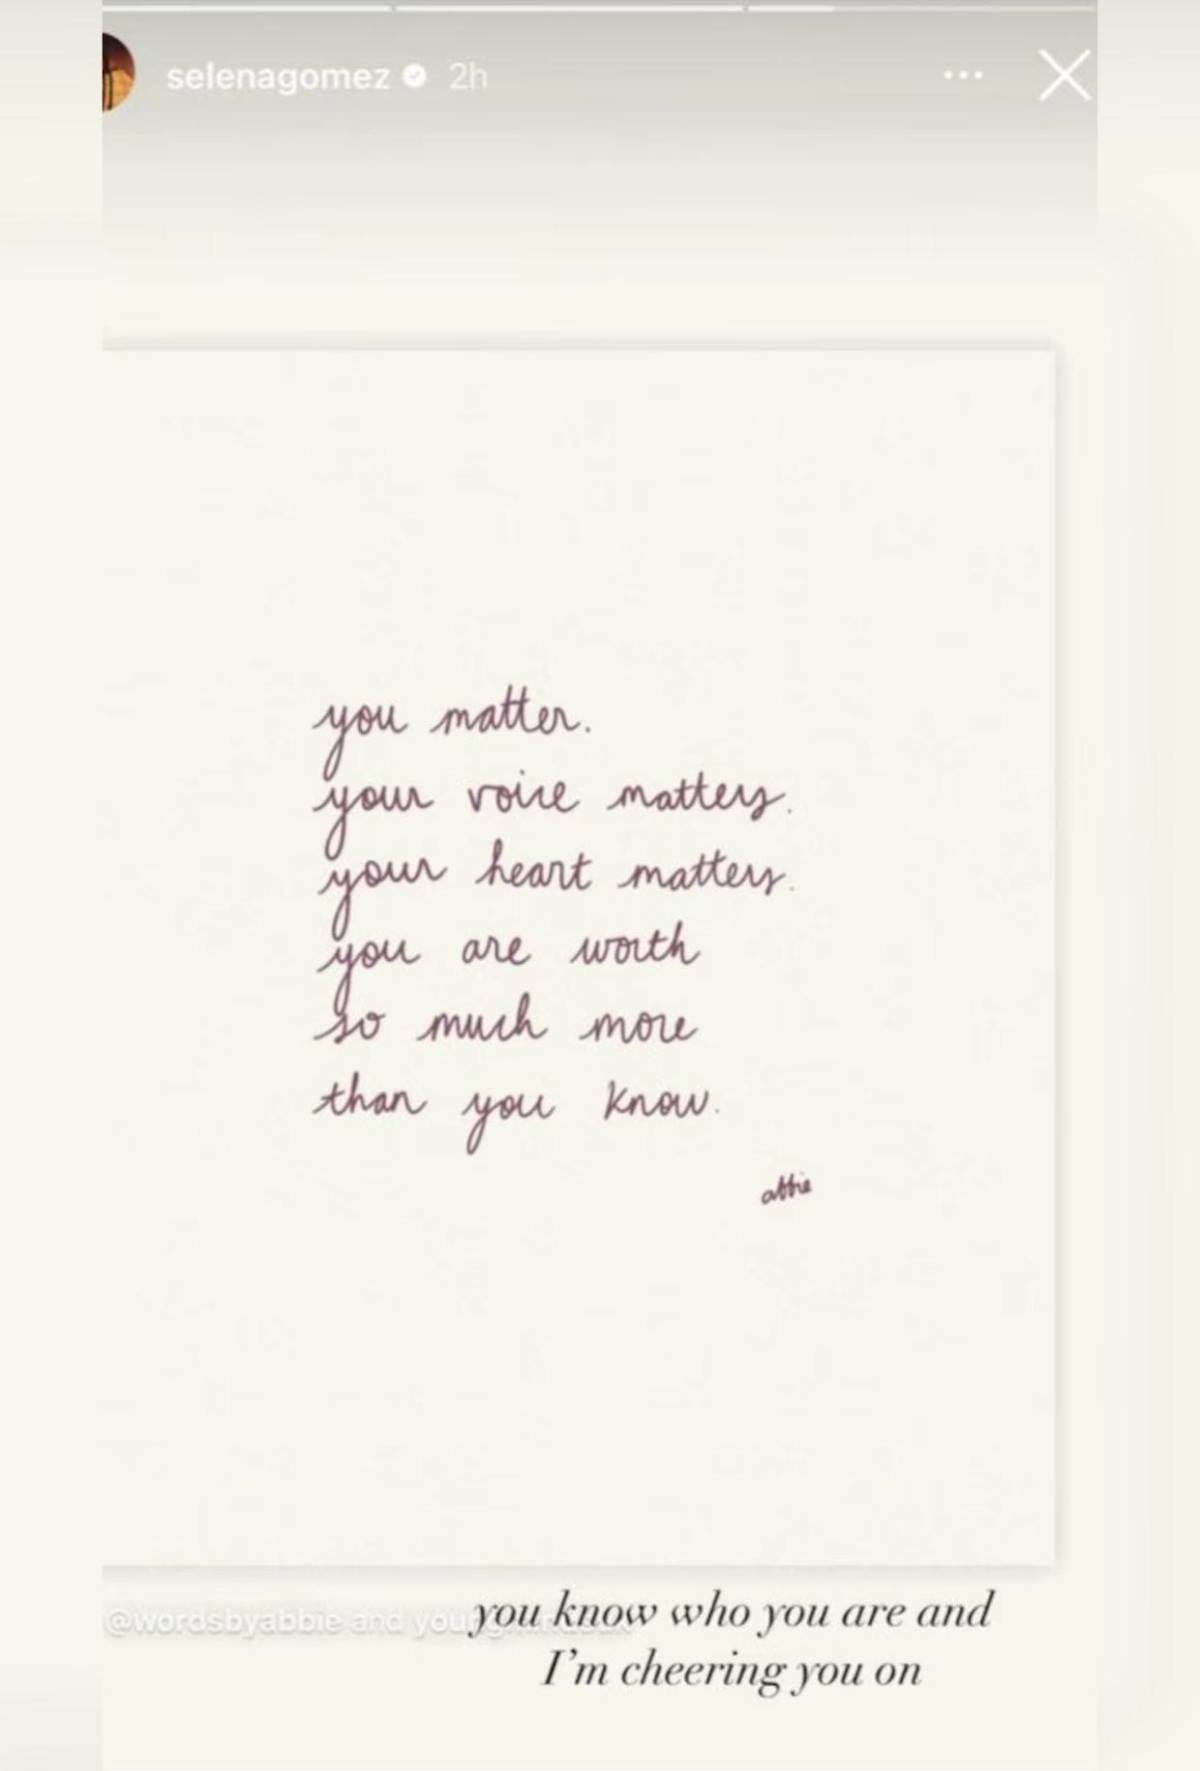 selenagomez 2h
you matter.
your voice matters.
your heart matters.
you are worth
so much more
than you know.
abbie
@wordsbyabbie and
you know who you are and
I'm cheering you on